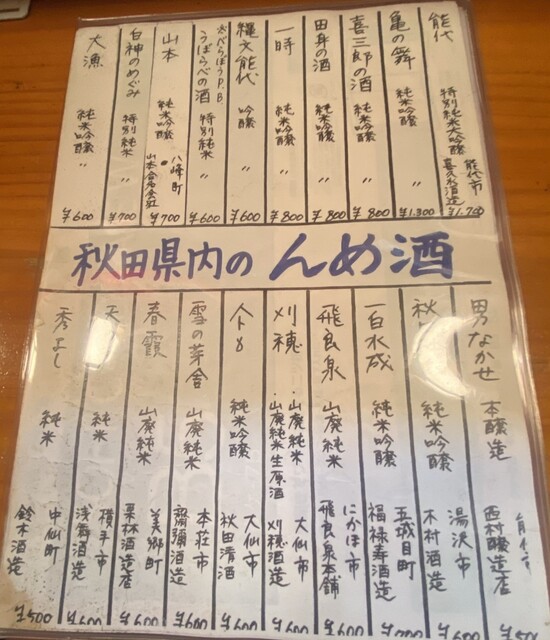 能代 特別純米大吟醸 能代市 喜久水酒造 ¥1.700
亀の舞 純米吟醸 〃 ¥1.300
喜三郎の酒 純米吟醸 〃 ¥800
田身の酒 純米吟醸 〃 ¥800
一時 純米吟醸 〃 ¥800
縄文能代 吟醸 〃 ¥600
べらぼうP.B
うばらべの酒 特別純米 〃 ¥600
山本 純米吟醸 八峰町 山本合名会社 ¥700
白神のめぐみ 特別純米 〃 ¥700
大漁 純米吟醸 〃 ¥600
秋田県内のんめ酒
男なかせ 本醸造 能代市 西村醸造店
純米吟醸 湯沢市 木村酒造
一白水成 純米吟醸 五城目町 福禄寿酒造
飛良泉 山廃純米 にかほ市 飛良泉本舗 ¥600
刈穂 ・山廃純米 ・山廃純米生原酒 大仙市 刈穂酒造 ¥600
純米吟醸 大仙市 秋田清酒 ¥600
雪の芽舎 山廃純米 本荘市 齋彌酒造 ¥600
春霞 山廃純米 美郷町 栗林酒造店 ¥600
純米 横手市 浅舞酒造 ¥600
秀よし 純米 中仙町 鈴木酒造 ¥500